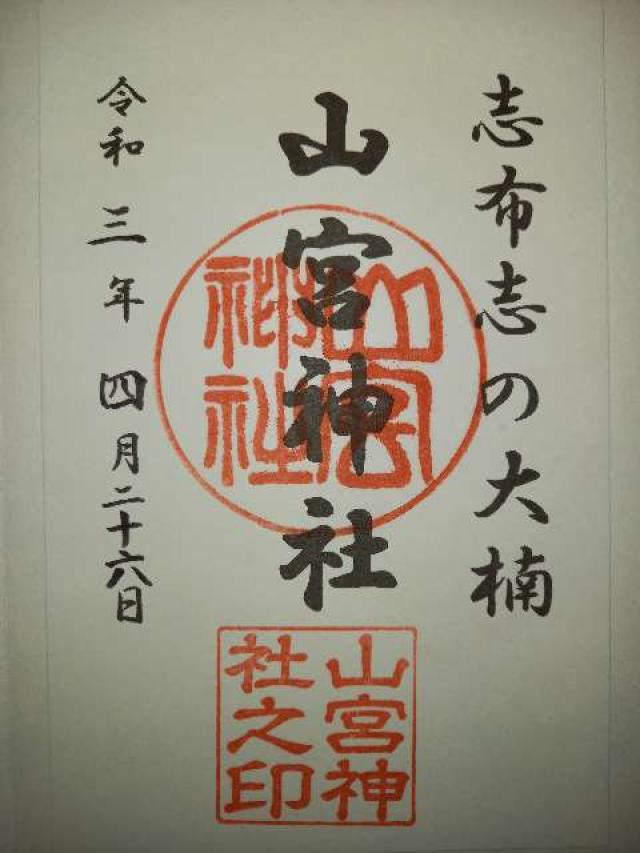 志布志の大楠
山宮神社
山宮
神社
山宮神
社之印
令和三年四月二十六日